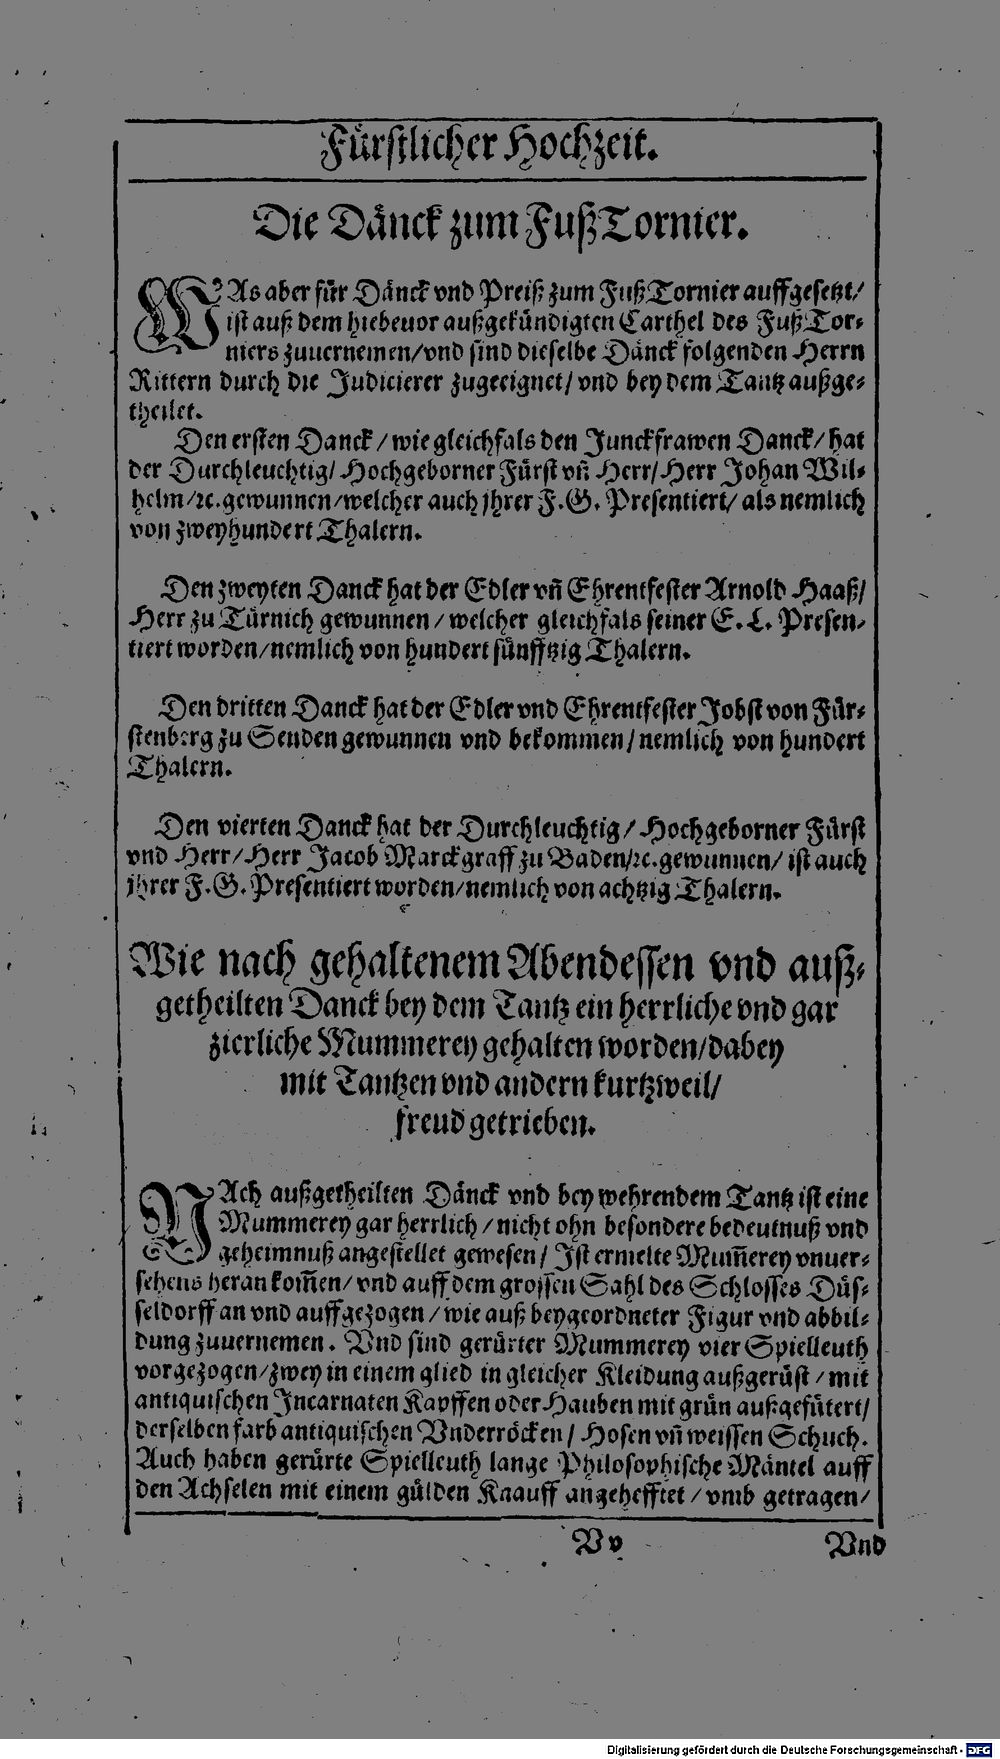 Fürstlicher Hochzeit.
Die Dänck zum Fuß Tornier.
WAs aber für Dänck vnd Preiß zum Fuß Tornier auffgesetzt/
ist auß dem hiebeuor außgekündigten Carthel des Fuß Tor-
niers zuuernemen/vnd sind dieselbe Dänck folgenden Herrn
Rittern durch die Judicierer zugeeignet/ vnd bey dem Tantz außge-
theilet.
Den ersten Danck / wie gleichfals den Junckfrawen Danck/ hat
der Durchleuchtig/ Hochgeborner Fürst vn̄ Herr/ Herr Johan Wil-
helm /ꝛc. gewunnen/welcher auch jhrer F. G. Presentiert/ als nemlich
von zweyhundert Thalern.
Den zweyten Danck hat der Edler vn̄ Ehrentfester Arnold Haaß/
Herr zu Türnich gewunnen / welcher gleichfals seiner E. L. Presen-
tiert worden/nemlich von hundert fünfftzig Thalern.
Den dritten Danck hat der Edler vnd Ehrentfester Jobst von Für-
stenberg zu Senden gewunnen vnd bekommen/ nemlich von hundert
Thalern.
Den vierten Danck hat der Durchleuchtig/ Hochgeborner Fürst
vnd Herr/ Herr Jacob Marckgraff zu Baden/ꝛc. gewunnen/ ist auch
jhrer F. G. Presentiert worden/nemlich von achtzig Thalern.
Wie nach gehaltenem Abendessen vnd auß-
getheilten Danck bey dem Tantz ein herrliche vnd gar
zierliche Mummerey gehalten worden/dabey
mit Tantzen vnd andern kurtzweil/
freud getrieben.
NAch außgetheilten Dänck vnd bey wehrendem Tantz ist eine
Mummerey gar herrlich / nicht ohn besondere bedeutnuß vnd
geheimnuß angestellet gewesen/ Ist ermelte Mum̄erey vnuer-
sehens heran kom̄en/ vnd auff dem grossen Sahl des Schlosses Düs-
seldorff an vnd auffgezogen / wie auß beygeordneter Figur vnd abbil-
dung zuuernemen. Vnd sind gerürter Mummerey vier Spielleuth
vorgezogen/zwey in einem glied in gleicher Kleidung außgerüst / mit
antiquischen Incarnaten Kapffen oder Hauben mit grün außgefütert/
derselben farb antiquischen Vnderröcken/ Hosen vn̄ weissen Schuch.
Auch haben gerürte Spielleuth lange Philosophische Mäntel auff
den Achselen mit einem gülden Knauff angehefftet / vmb getragen/
Vv Vnd
Digitalisierung gefördert durch die Deutsche Forschungsgemeinschaft - DFG